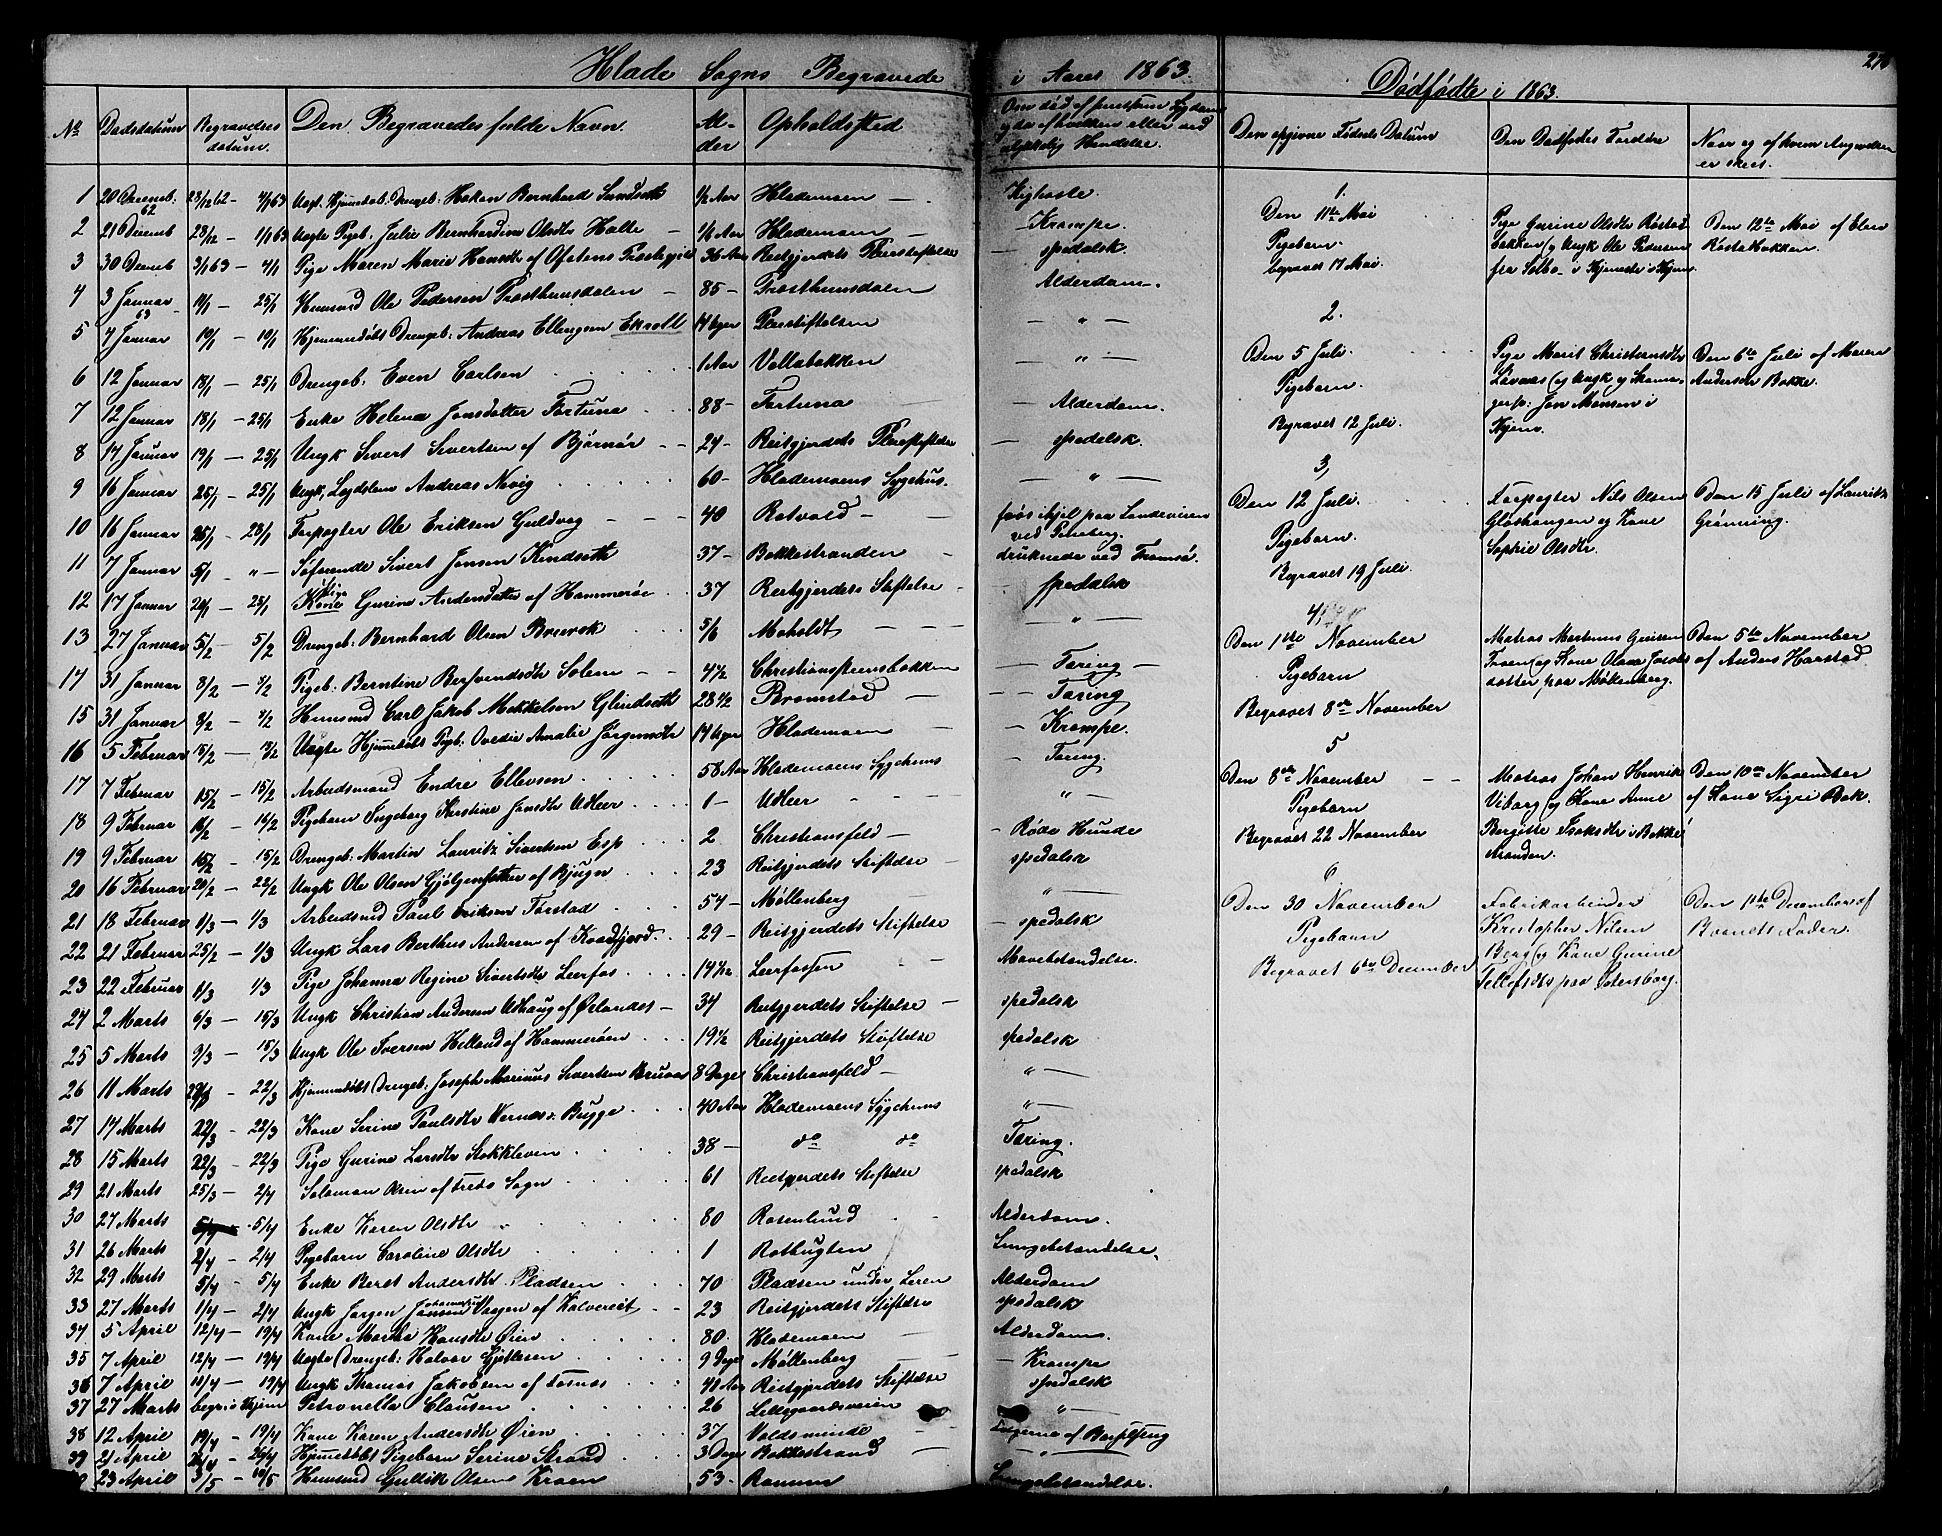 Hlade Sogns Begravede i Aaret 1863
Dødfødte i 1863.
No Dødsdatum Begravelses datum. Den Begravedes fulde Navn. Alder Opholdssted
1 20 Decemb. 62 23/12 62 — 4/1 63 Hakon Bernhard Sundseth 1/2 Aar Hlademoen — Kighoste.
2 21 Decemb 28/12 — 1/1 63 Uægte Pigeb. Julie Bernhardine Olsdtr Halle — Hlademoen — Krampe.
3 30 Decemb 3/1 63 — 4/1 Pige Maren Marie Hansdtr af Ofotens 36 Aar Reitgjerdets Pleiestiftelse — spedalsk.
4 3 Januar 63 — 25/1 Huusmd Ole Pedersen 85 — Alderdom.
5 4 Januar — Drengeb. Andreas Ellengsen Pleiestiftelsen — " —
6 12 Januar 18/1 — 25/1 Drengeb. Even Carlsen 1 Aar Vollabakken — " —
7 12 Januar 18/1 — 25/1 Enke Helena Jonsdatter Fortuna 88 — Fortuna — Alderdom.
8 14 Januar 19/1 — 25/1 Ungk Sivert Sivertsen af Bjørnør 24 — Reitgjerdets Pleiestiftelse — spedalsk.
9 16 Januar 25/1 — 25/1 Ungk. Andreas 60 — Hlademoens Sygehus. — " —
10 16 Januar Forpagter Ole Eriksen Guldveg — 40 Rotvold — frøs ihjel paa Landeveien ved
11 7 Januar 5/1 — " — Søfarende Sivert Jonsen Kindseth 37 — Bakkestranden druknede ved Tromsø.
12 17 Januar — 25/1 Pige Kone Gurine Andersdatter af Hammerøe 37 Reitgjerdets Stiftelse — spedalsk
13 27 Januar 5/2 — 5/2 Drengeb. Bernhard Olsen 5/6 Moholdt — " —
14 31 Januar 8/2 — 8/2 Pigeb. Berntine Solem 4 1/2 Christiansteensbakken — Tæring —
15 31 Januar 8/2 — 8/2 Huusmd Carl Jakob Mekkelsen 28 1/2 Bromstad — Tæring
16 5 Februar 15/2 — Uægte Pigeb. Ovedie Amalie Jørgensdtr 14 Uger Hlademoen — Krampe.
17 7 Februar 15/2 — 15/2 Arbeidsmand Endre Ellevsen 58 Aar Hlademoens Sygehuus — Tæring.
18 9 Februar — 15/2 Pigebarn Ingeborg Kirstine Jonsdtr Udleer 1 — Udleer " —
19 9 Februar 15/2 — 15/2 Drengeb. Martin Lauritz Sivertsen Esp 2 Christiansfeld — Røde Hunde
20 16 Februar 20/2 — 22/2 Ungk Ole Olsen af Bjugn 23 Reitgjerdets Stiftelse — spedalsk
21 18 Februar 1/3 — 1/3 Arbeidsmd Paul Eriksen Torstad 54 — Møllenberg " —
22 21 Februar 25/2 — 1/3 Ungk Lars Berthus Andersen af Kvædfjord 29 — Reitgjerdets Stiftelse — spedalsk
23 22 Februar 1/3 1/3 Pige Johanna Regine Sivertsdtr Leerfos Leerfossen Mavebetændelse.
24 2 Marts 6/3 — 15/3 Ungk Christian Andersen Udhaug af Ørlandet — 34 Reitgjerdets Stiftelse — spedalsk
25 5 Marts 9/3 — 15/3 Ungk Ole Iversen Helland af Hammerøen 19 1/2 Reitgjerdets Stiftelse spedalsk
26 11 Marts — 22/3 Hjemmedøbt Drengeb. Joseph Marinus Sivertsen 8 Dage Christiansfeld — " —
27 14 Marts 22/3 — 22/3 Kone Serine Paulsdtr Bugge 40 Aar Hlademoens Sygehuus " —
28 15 Marts 22/3 — 22/3 Pige Gurine Larsdtr Stokkleven 38 — do do Tæring.
29 21 Marts 25/3 — 2/4 Salomon af Sogn 61 Reitgjerdets Stiftelse spedalsk
30 27 Marts 5/4 Enke Karen Olsdtr 80 Rosenlund Alderdom.
31 26 Marts 2/4 — 2/4 Pigebarn Caroline Olsdtr 1 Rotbugten Lungebetændelse.
32 29 Marts 5/4 — 5/4 Enke Beret Andersdtr Pladsen 70 Pladsen under Leren Alderdom
33 27 Marts 1/4 — 2/4 Ungk Jørgen Jansen af 23 Reitgjerdets Stiftelse spedalsk
34 5 April 12/4 — 19/4 Kone Marthe Hansdtr Øien 80 Hlademoen Alderdom.
35 7 April 12/4 — 19/4 Uægte Drengeb. Halvor 9 Dage Møllenberg — Krampe
36 7 April — 19/4 Ungk Thomas Jakobsen af 41 Aar Reitgjerdets Stiftelse spedalsk
37 27 Marts Petronella Clausen 26 Lillegaardsveien " —
38 12 April 19/4 — 19/4 Kone Karen Andersdtr Øien 37 Voldsminde
39 21 April — 26/4 Hjemmedøbt Pigebarn Serine Strand 3 Dage Bakkestrand — " —
23 April 3/5 — 10/5 Huusmd Gullik Olsen 53 — Lungebetændelse.
Den opgivne Fødsels Datum
Den Dødfødtes Forældre
Naar og af hvem Angivelsen er skeet.
1.
Den 11te Mai
Pigebarn.
begravet 17 Mai.
Pige Gurine Olsdtr Røstad
bakken og Ungk Ole Pedersen
fra Selbo
Den 12te Mai af Elen
Røstadbakken.
2.
Den 5 Juli.
Pigebarn.
Begravet 12 Juli.
Pige Marit Christensdtr
Løvaas og Ungk og Skoma-
gersv: Jon Monsen i
Hjem.
Den 6te Juli af Maren
Andersdtr Bakke.
3,
Den 12 Juli.
Pigebarn.
Begravet 19 Juli.
Forpagter Nils Olsen
Gløshaugen og Kone
Sophie Olsdtr.
Den 15 Juli af Lauritz
Grønning.
4,
Den 1ste November
Pigebarn
Begravet 8de November
Matros Martinus
og Kone Olava Jacobs
datter paa Møllenberg.
Den 5te November
af Anders Harstad
5
Den 8de November
Pigebarn
Begravet 22 November
Matros Johan Henrik
Viborg og Kone Anne
Bergitte Isaksdtr i Bakke
stranden.
Den 10de November
af Kone Sigri Bak.
6
Den 30 November
Pigebarn
Begravet 6te December
Fabrikarbeider
Kristopher Nilsen
Berg og Kone Gurine
paa Petersborg.
Den 11te December af
Barnets Fader.